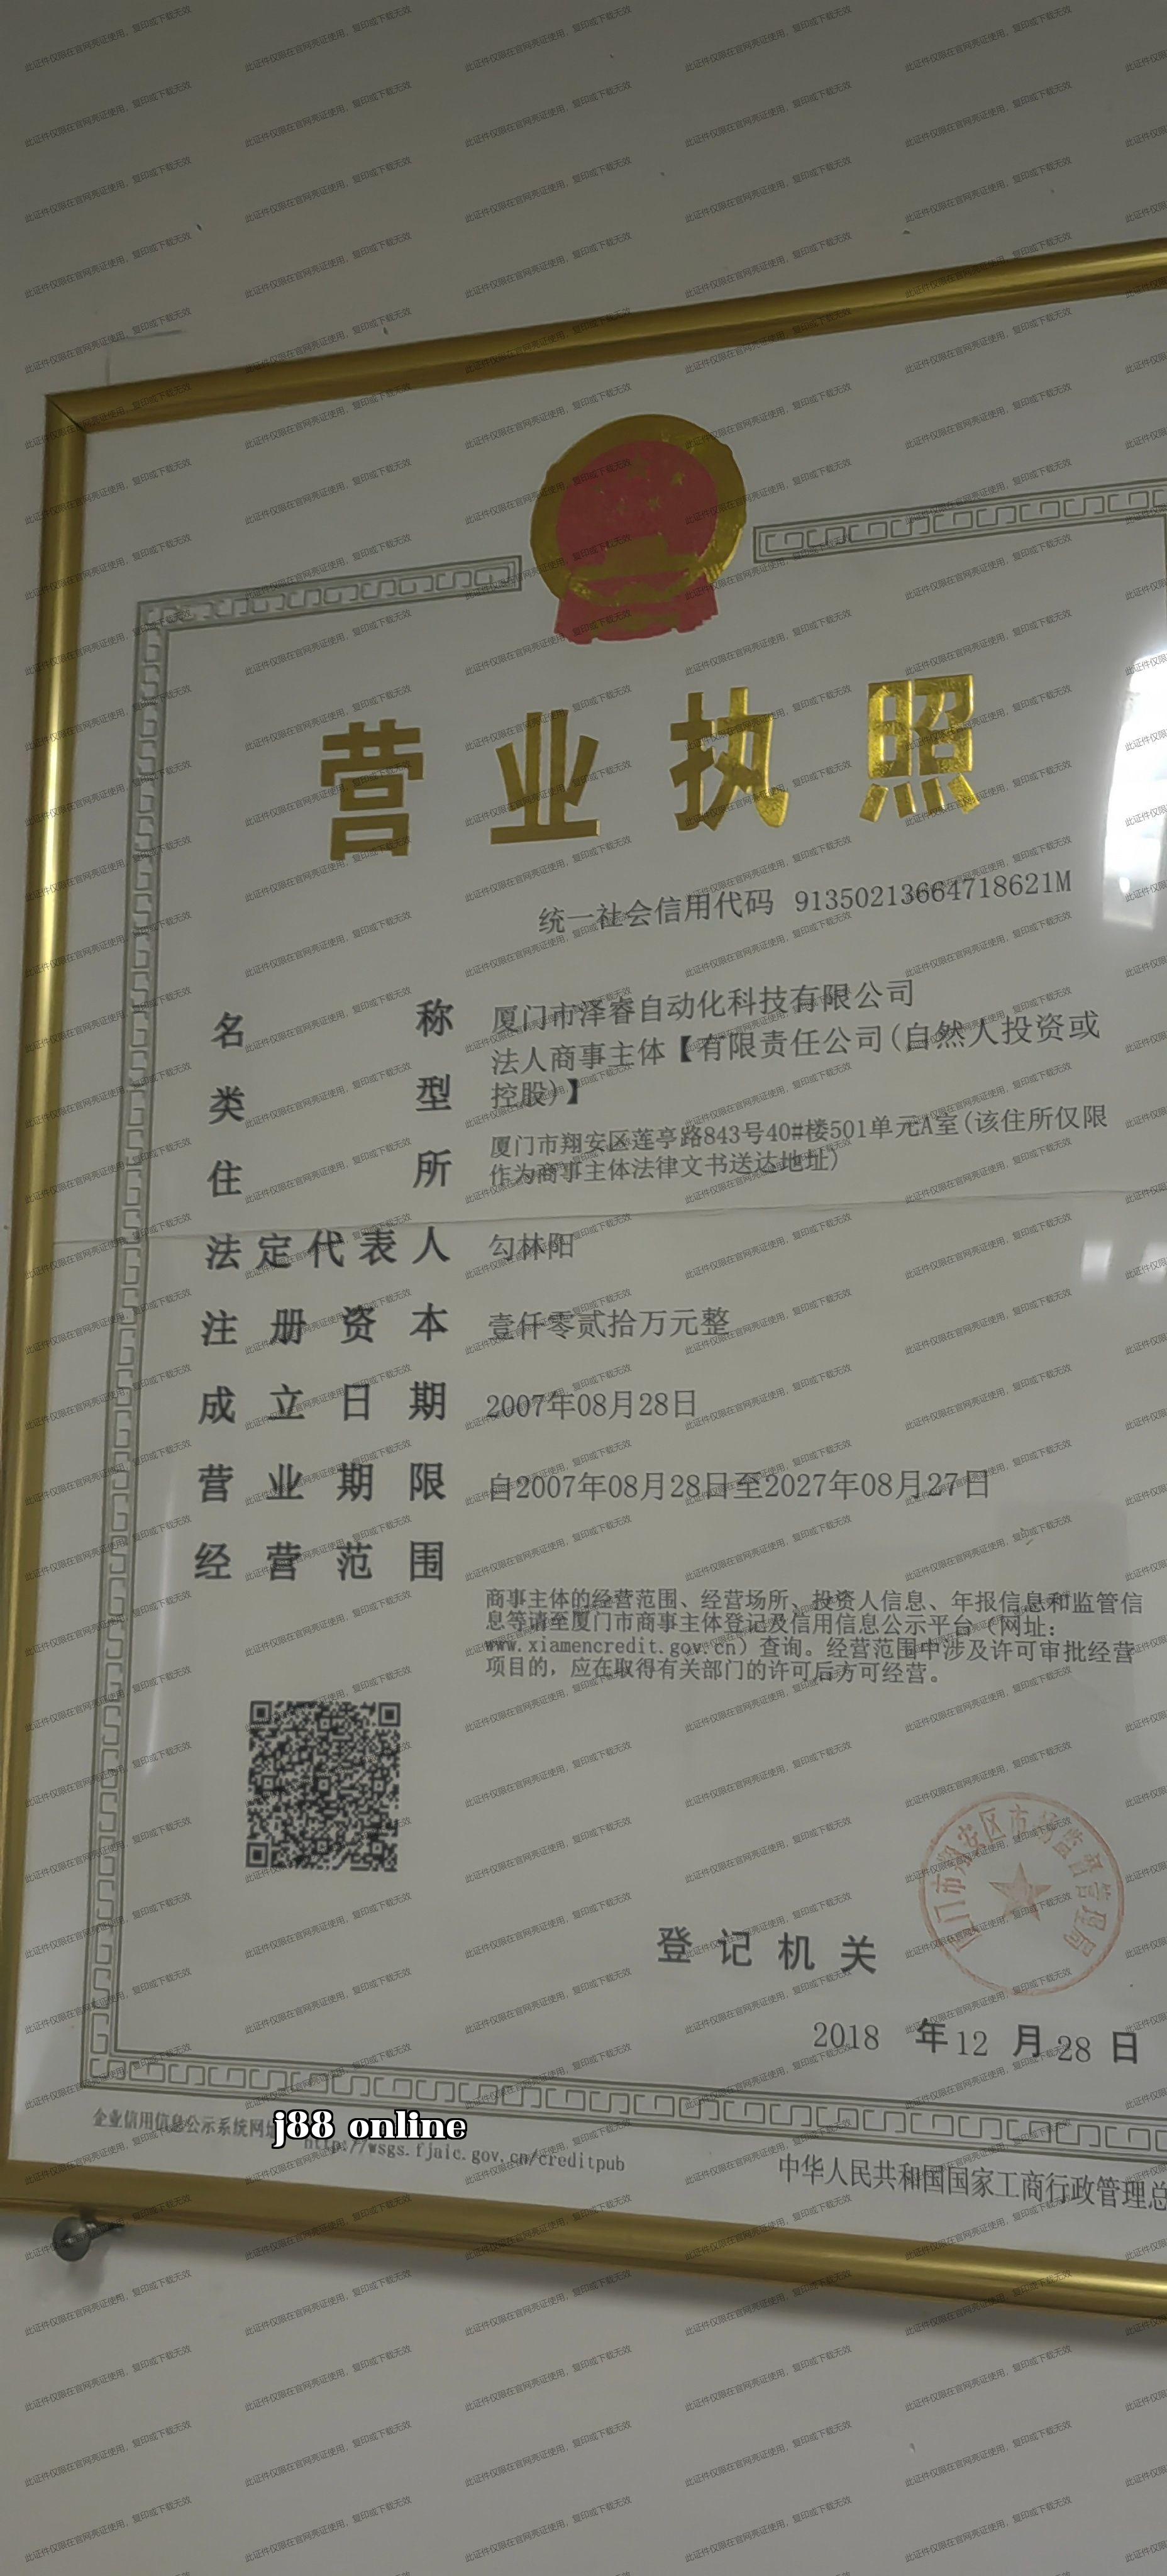 营业执照
统一社会信用代码 91350213664718621M
名称 厦门市泽睿自动化科技有限公司
类型 法人商事主体【有限责任公司(自然人投资或
控股)】
住所 厦门市翔安区莲亭路843号40#楼501单元A室(该住所仅限
作为商事主体法律文书送达地址)
法定代表人 勾林阳
注册资本 壹仟零贰拾万元整
成立日期 2007年08月28日
营业期限 自2007年08月28日至2027年08月27日
经营范围
商事主体的经营范围、经营场所、投资人信息、年报信息和监管信
息等请至厦门市商事主体登记及信用信息公示平台（网址：
www.xiamencredit.gov.cn）查询。经营范围中涉及许可审批经营
项目的，应在取得有关部门的许可后方可经营。
厦门市翔安区市场监督管理局
登记机关
2018 年 12 月 28 日
企业信用信息公示系统网址
j88 online
http://wsgs.fjaic.gov.cn/creditpub
中华人民共和国国家工商行政管理总
此证件仅限在官网亮证使用，复印或下载无效